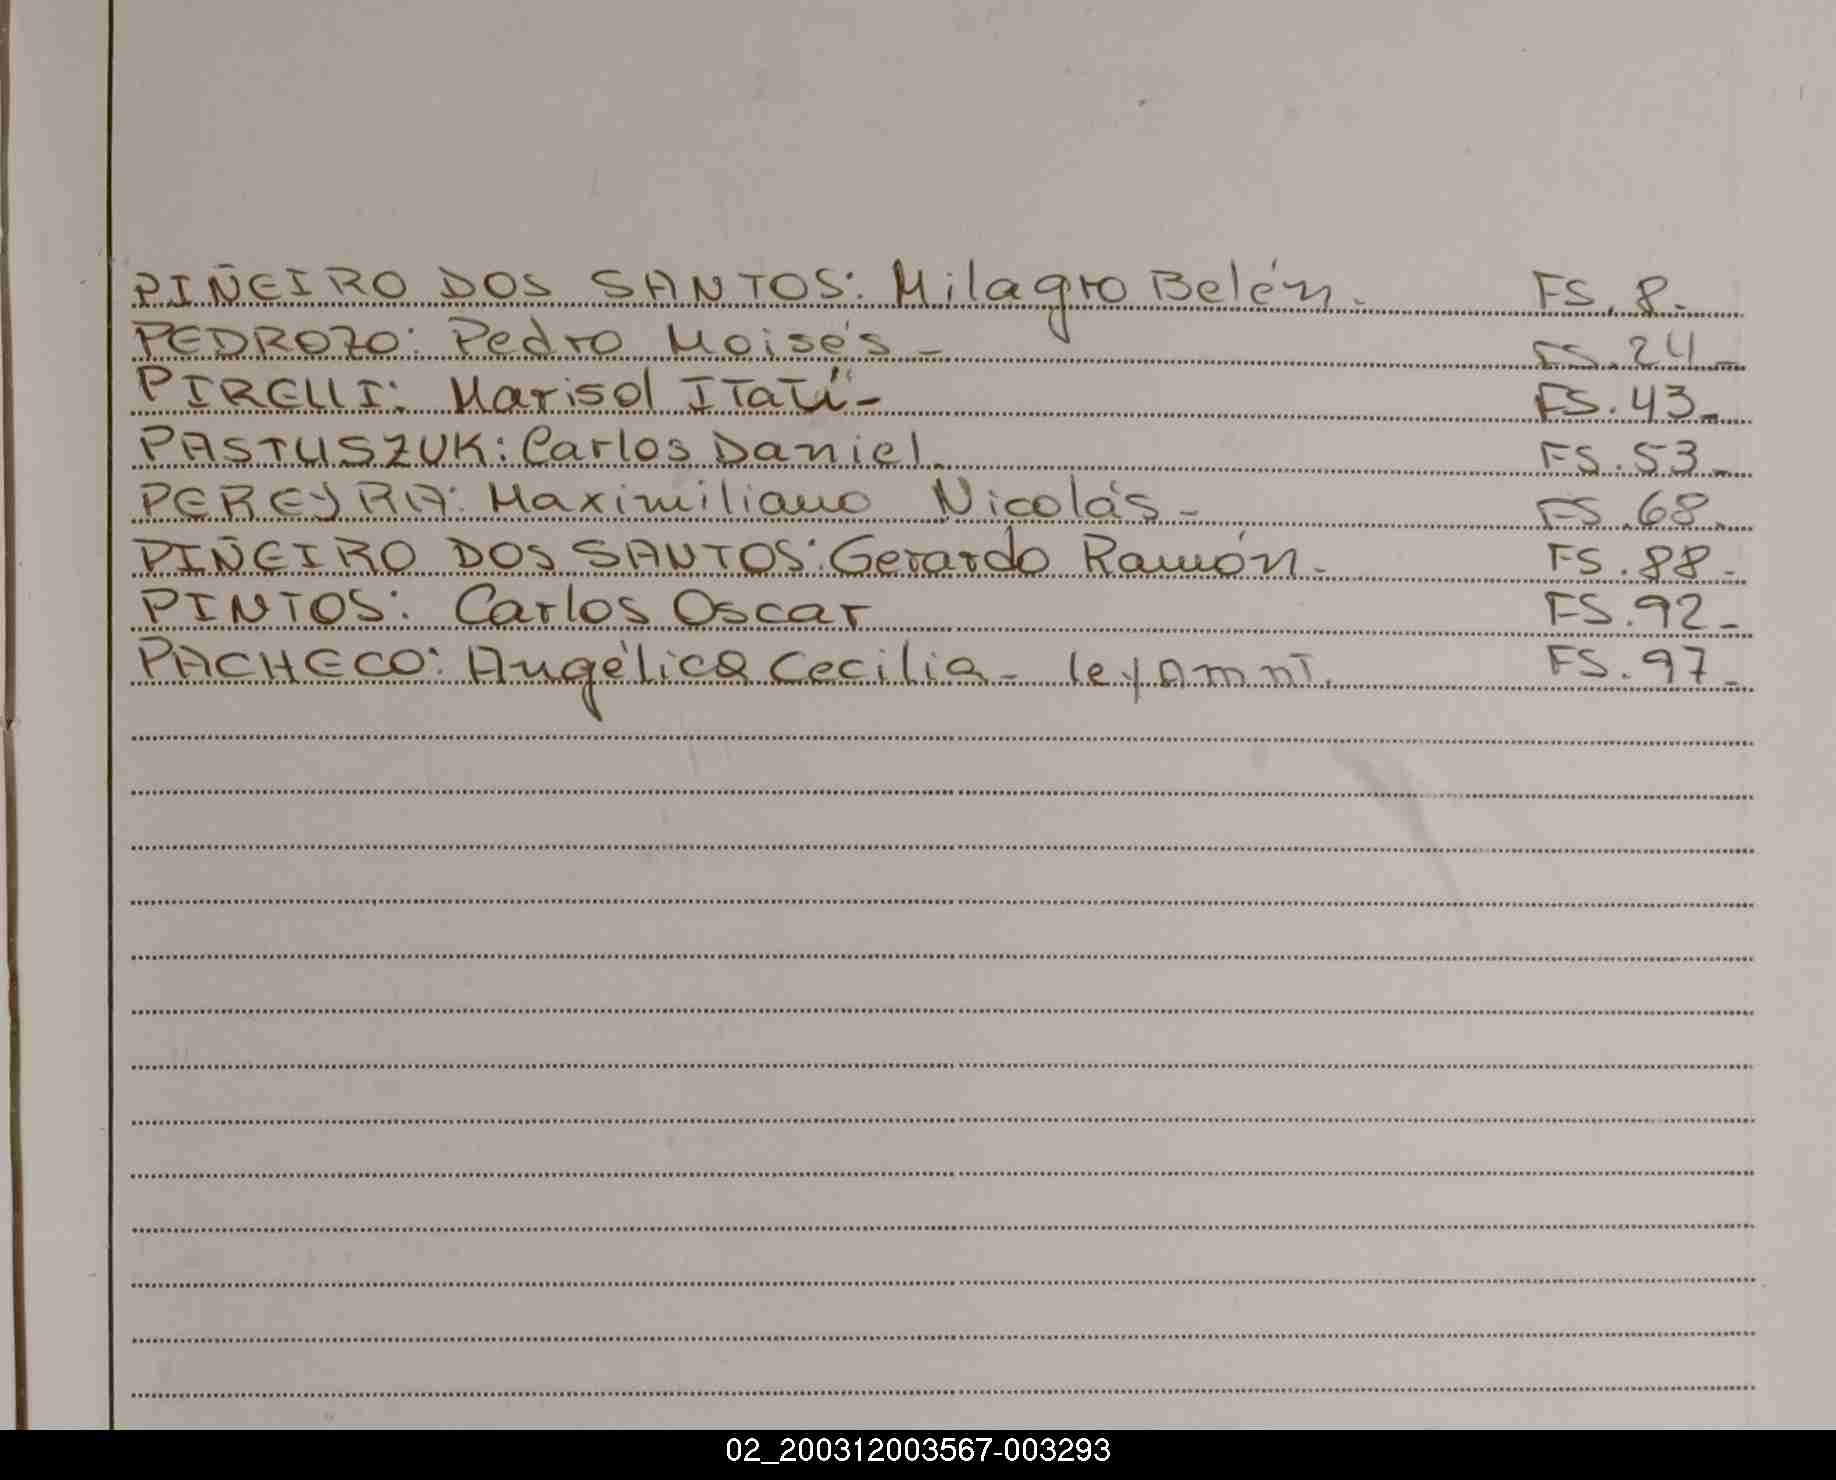 PIÑEIRO DOS SANTOS: Milagro Belén. FS. 8.-
PEDROZO: Pedro Moisés - FS. 24 -
PIRELLI: Marisol Itatí - FS. 43 -
PASTUSZUK: Carlos Daniel. FS. 53 -
PEREYRA: Maximiliano Nicolás - FS. 68.
PIÑEIRO DOS SANTOS: Gerardo Ramón. FS. 88 -
PINTOS: Carlos Oscar FS. 92 -
PACHECO: Angélica Cecilia - FS. 97 -
02_200312003567-003293